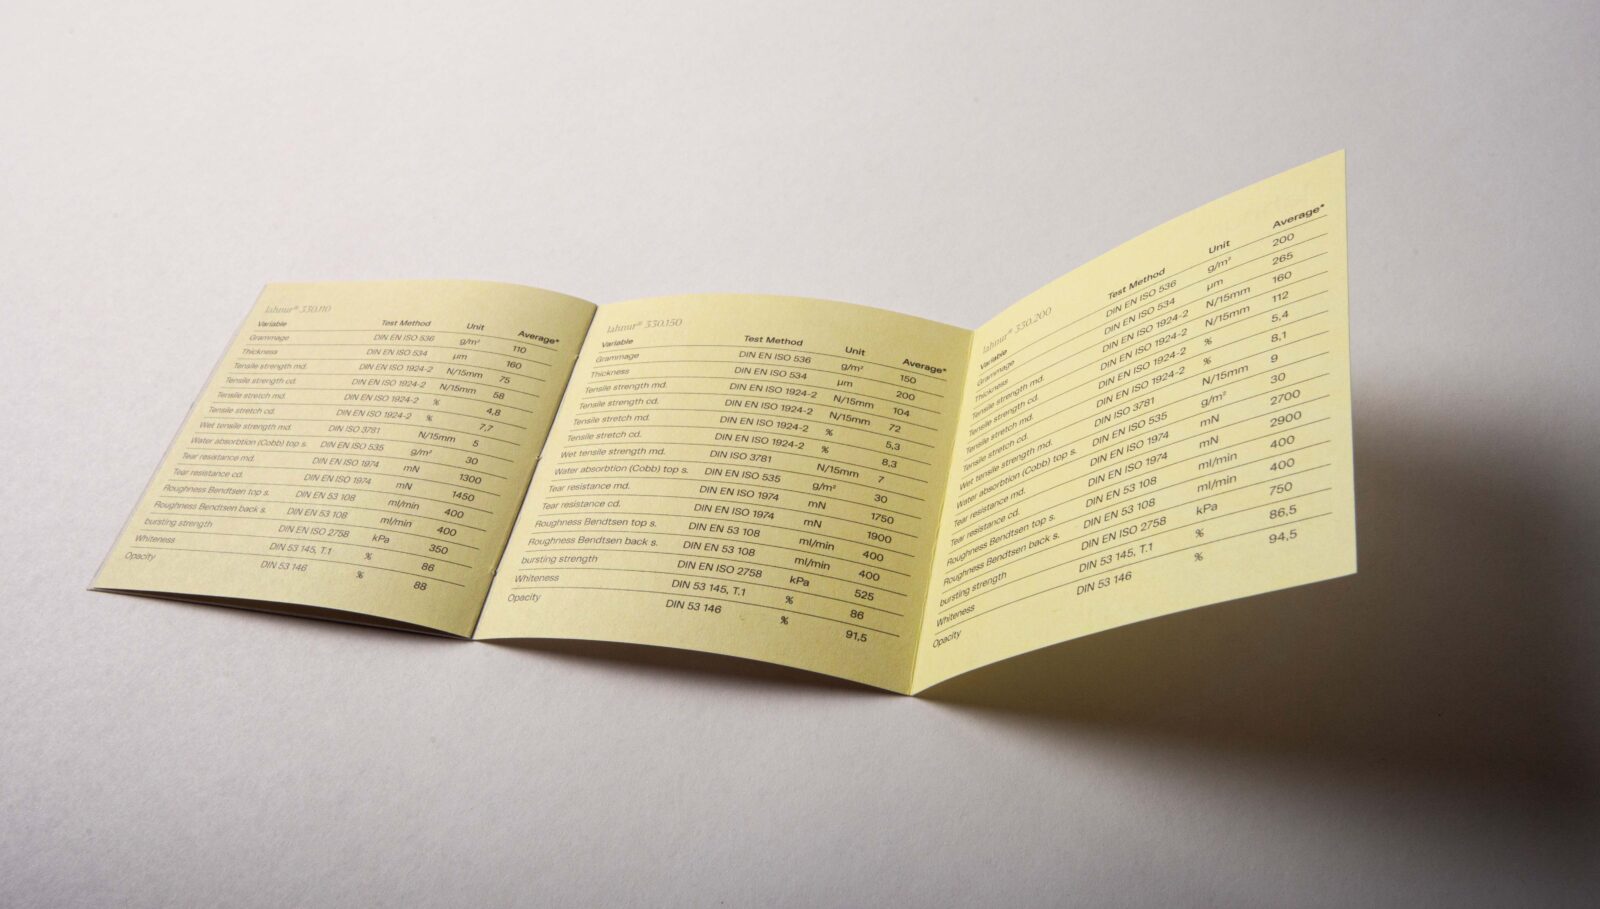 lahnur® 330.110
Variable Test Method Unit Average*
Grammage DIN EN ISO 536 g/m² 110
Thickness DIN EN ISO 534 µm 160
Tensile strength md. DIN EN ISO 1924-2 N/15mm 75
Tensile strength cd. DIN EN ISO 1924-2 N/15mm 58
Tensile stretch md. DIN EN ISO 1924-2 % 4,8
Tensile stretch cd. DIN EN ISO 1924-2 % 7,7
Wet tensile strength md. DIN ISO 3781 N/15mm 5
Water absorbtion (Cobb) top s. DIN EN ISO 535 g/m² 30
Tear resistance md. DIN EN ISO 1974 mN 1300
Tear resistance cd. DIN EN ISO 1974 mN 1450
Roughness Bendtsen top s. DIN EN 53 108 ml/min 400
Roughness Bendtsen back s. DIN EN 53 108 ml/min 400
bursting strength DIN EN ISO 2758 kPa 350
Whiteness DIN 53 145, T.1 % 86
Opacity DIN 53 146 % 88
lahnur® 330.150
Variable Test Method Unit Average*
Grammage DIN EN ISO 536 g/m² 150
Thickness DIN EN ISO 534 µm 200
Tensile strength md. DIN EN ISO 1924-2 N/15mm 104
Tensile strength cd. DIN EN ISO 1924-2 N/15mm 72
Tensile stretch md. DIN EN ISO 1924-2 % 5,3
Tensile stretch cd. DIN EN ISO 1924-2 % 8,3
Wet tensile strength md. DIN ISO 3781 N/15mm 7
Water absorbtion (Cobb) top s. DIN EN ISO 535 g/m² 30
Tear resistance md. DIN EN ISO 1974 mN 1750
Tear resistance cd. DIN EN ISO 1974 mN 1900
Roughness Bendtsen top s. DIN EN 53 108 ml/min 400
Roughness Bendtsen back s. DIN EN 53 108 ml/min 400
bursting strength DIN EN ISO 2758 kPa 525
Whiteness DIN 53 145, T.1 % 86
Opacity DIN 53 146 % 91,5
lahnur® 330.200
Variable Test Method Unit Average*
Grammage DIN EN ISO 536 g/m² 200
Thickness DIN EN ISO 534 µm 265
Tensile strength md. DIN EN ISO 1924-2 N/15mm 160
Tensile strength cd. DIN EN ISO 1924-2 N/15mm 112
Tensile stretch md. DIN EN ISO 1924-2 % 5,4
Tensile stretch cd. DIN EN ISO 1924-2 % 8,1
Wet tensile strength md. DIN ISO 3781 N/15mm 9
Water absorbtion (Cobb) top s. DIN EN ISO 535 g/m² 30
Tear resistance md. DIN EN ISO 1974 mN 2700
Tear resistance cd. DIN EN ISO 1974 mN 2900
Roughness Bendtsen top s. DIN EN 53 108 ml/min 400
Roughness Bendtsen back s. DIN EN 53 108 ml/min 400
bursting strength DIN EN ISO 2758 kPa 750
Whiteness DIN 53 145, T.1 % 86,5
Opacity DIN 53 146 % 94,5